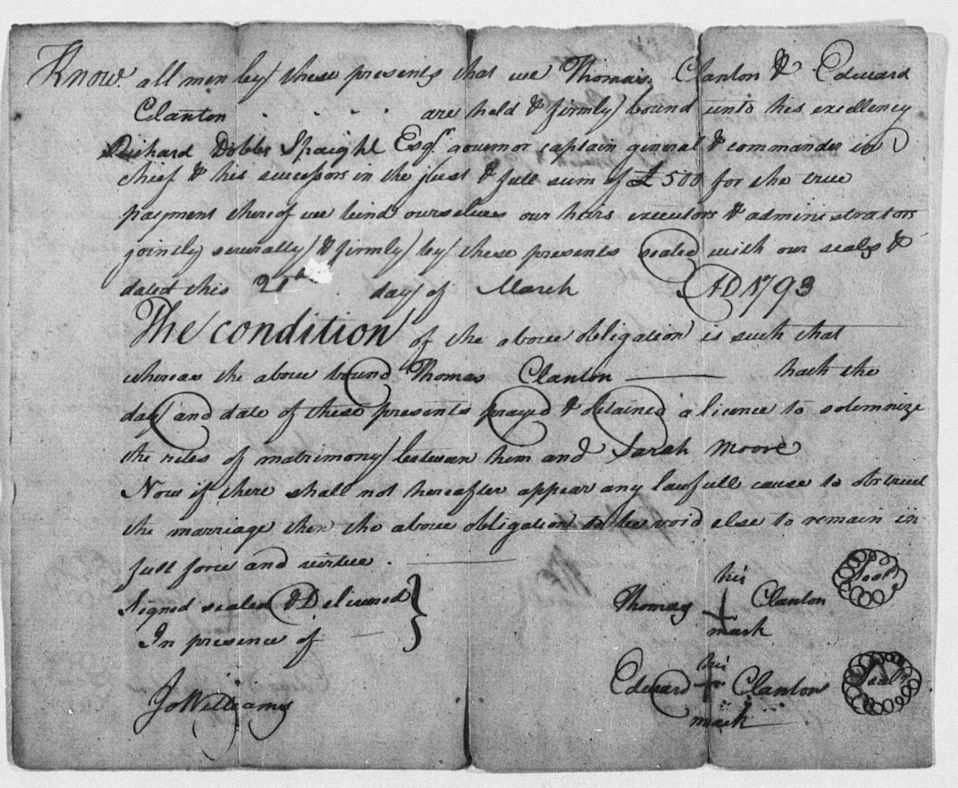 Know all men by these presents that we Thomas Clanton & Edward
Clanton . . . . are held & firmly bound unto his excellency
Richard Dobbs Spaight Esqr. governor captain general & commander in
chief & his successors in the just & full sum of £500 for the true
payment thereof we bind ourselves our heirs executors & administrators
jointly severally & firmly by these presents sealed with our seals &
dated this 21st day of March AD 1793
The condition of the above obligation is such that
whereas the above bound Thomas Clanton hath the
day and date of these presents prayed & obtained a licence to solemnize
the rites of matrimony between him and Sarah Moore
Now if there shall not hereafter appear any lawfull cause to obstruct
the marriage then the above obligation to be void else to remain in
full force and virtue.
Signed sealed & Delivered
In presence of
Jo Williams
his
Thomas + Clanton Seal
mark
his
Edward + Clanton Seal
mark